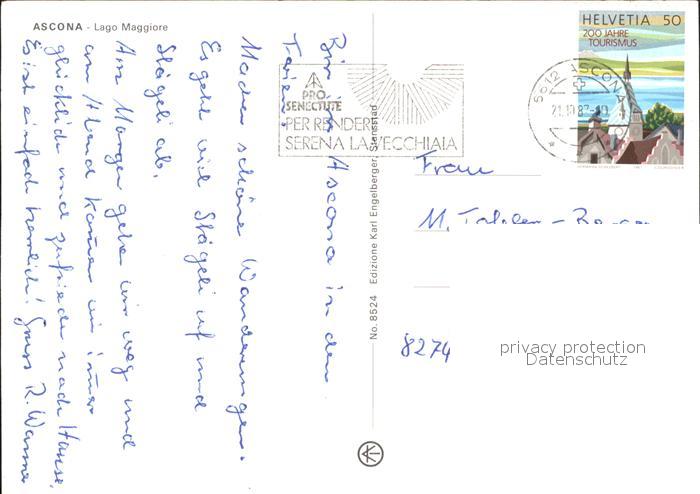 ASCONA - Lago Maggiore
HELVETIA 50
200 JAHRE
TOURISMUS
6612 ASCONA
21.10.87
PRO
SENECTUTE
PER RENDERE
SERENA LA VECCHIAIA
No. 8524 Edizione Karl Engelberger, Stansstad
Bin in Ascona in den
Ferien.
Machen schöne Wanderungen.
Es geht viel Stägeli uf und
Stägeli ab.
Am Morgen gehen wir weg und
am Abend kommen wir immer
glücklich und zufrieden nach Hause.
Es ist einfach herrlich! Gruss R. Wanner
Frau
M.
8274
privacy protection
Datenschutz